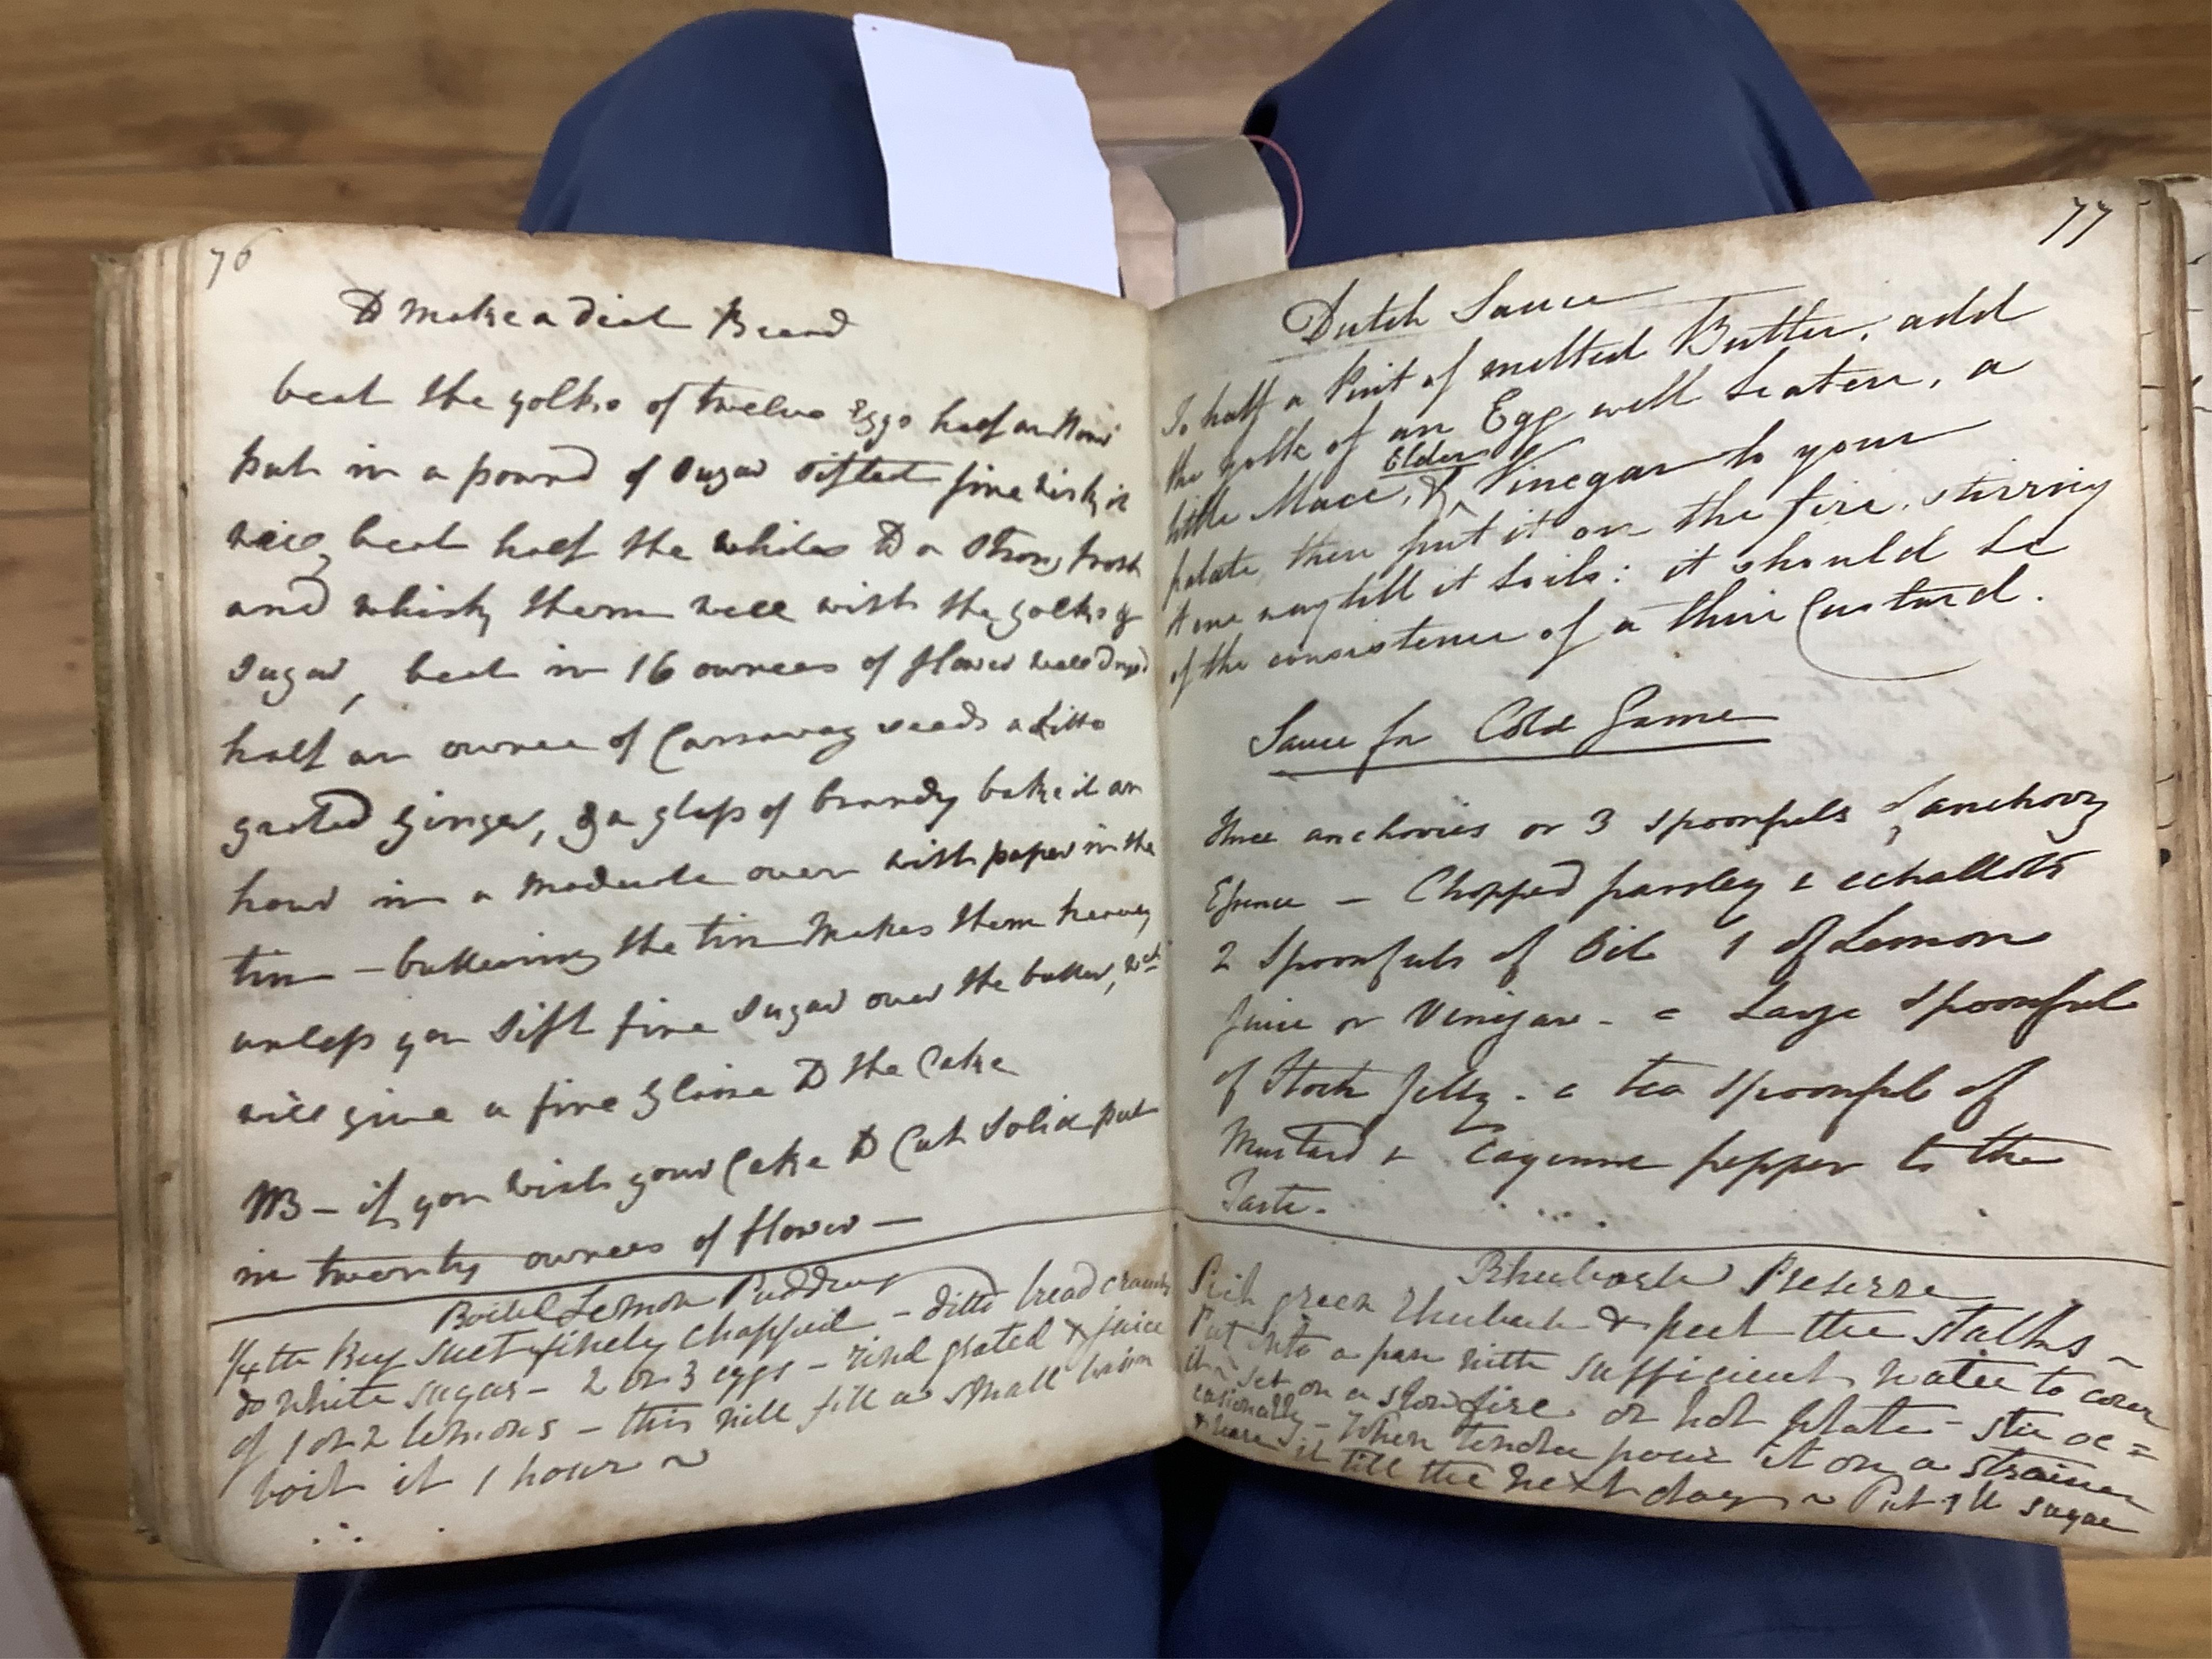 76
To make a diet Bread
beat the yolks of twelve Eggs half an Hour
put in a pound of Sugar sifted fine whisk it
well, beat half the whites to a strong froth
and whisk them well with the yolks &
sugar, beat in 16 ounces of flower well dryd
half an ounce of Carraway seeds a ditto
grated ginger, & a glass of brandy bake it an
hour in a moderate oven with paper in the
tin - buttering the tin makes them heavey
unless you sift fine sugar over the butter, wch
will give a fine gloise to the Cake
NB - if you wish your Cake to Cut Solid put
in twenty ounces of flower -
Boiled Lemon Pudding
1/4 lb Beef suet finely chopped - ditto bread crumbs
do white sugar - 2 or 3 eggs - rind grated & juice
of 1 or 2 lemons - this will fill a small basin
boil it 1 hour ~
77
Dutch Sauce
To half a Pint of melted Butter, add
the yolk of an Egg well beaten, a
little Mace, & Elder Vinegar to your
palate, then put it on the fire, stirring
it one way till it boils: it should be
of the consistence of a thin Custard.
Sauce for Cold Game
three anchovies or 3 spoonfuls of anchovy
Essence - Chopped parsley & echallots
2 Spoonfuls of Oil 1 of Lemon
juice or Vinegar - a Large Spoonful
of Stock jelly - a tea spoonful of
Mustard & Cayenne pepper to the
Taste.
Rhubarb Preserve
Pick green Rhubarb & peel the stalks ~
Put into a pan with sufficient water to cover
it ~ set on a slow fire or hot plate - stir oc=
casionally - When tender pour it on a strainer
& leave it till the next day ~ Put 1 lb sugar